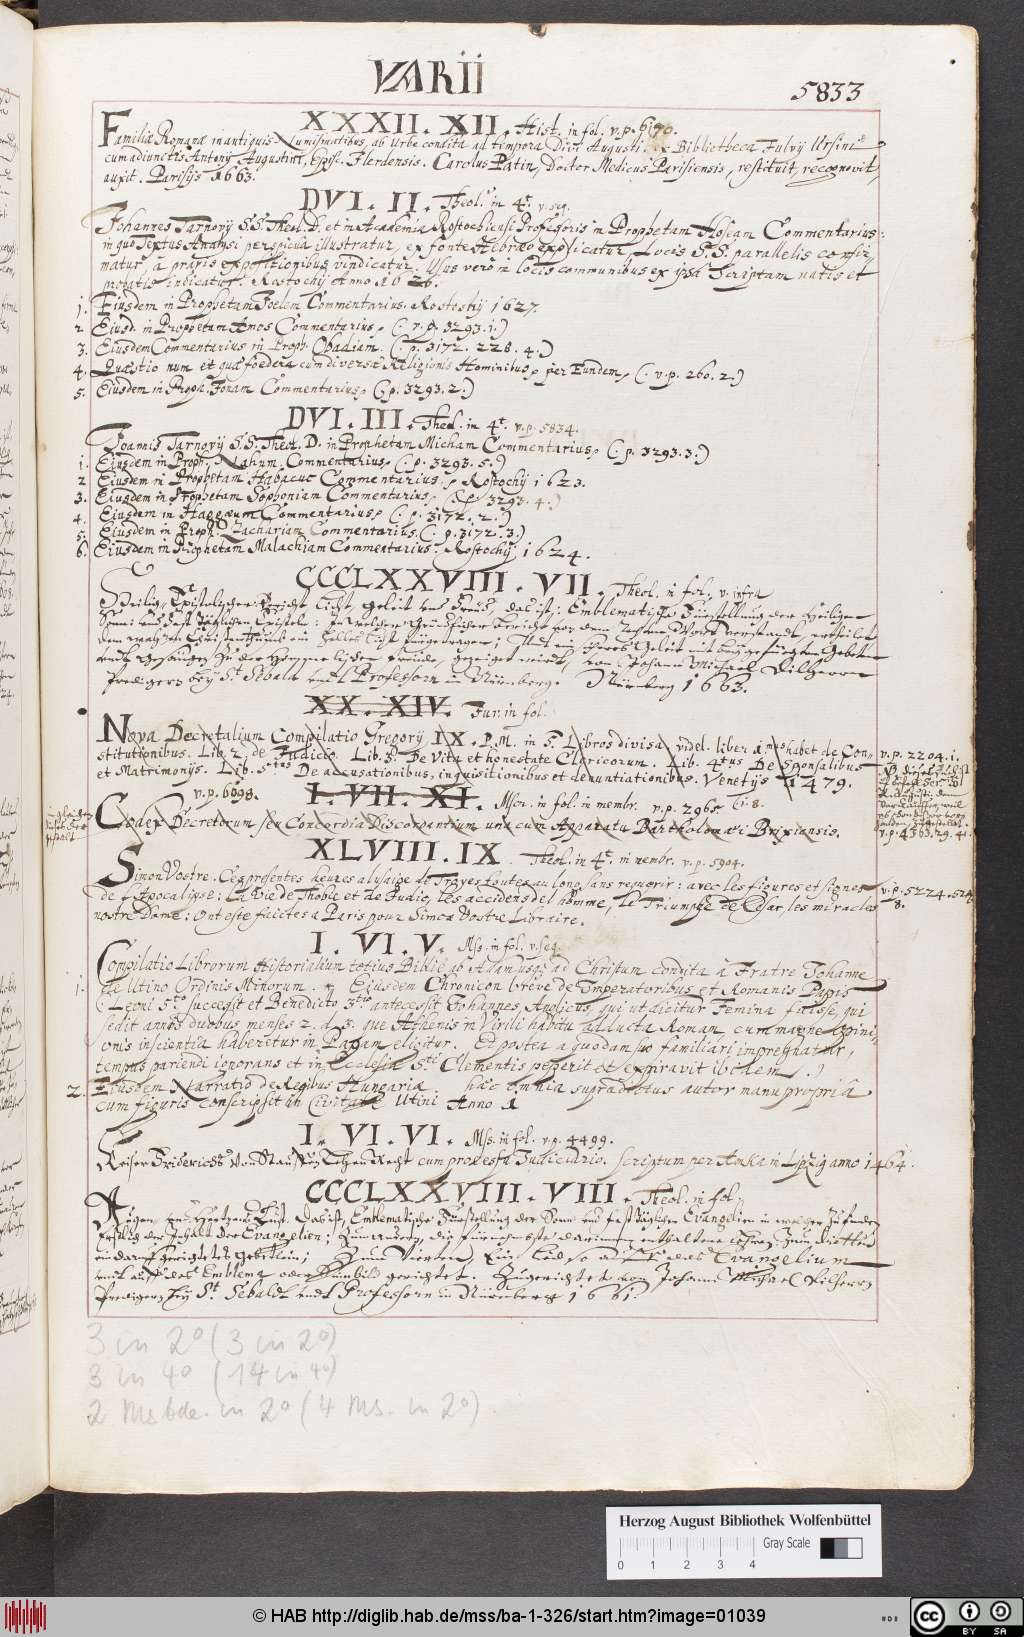 VARII
5833
XXXII. XII. Hist. in fol. v. p. 6170.
Familiæ Romanæ in antiquis Numismatibus, ab Urbe condita ad tempora Divi Augusti. ex Bibliotheca Fulvÿ Ursini
cum adiunctis Antonÿ Augustini, Episc. Ilerdensis. Carolus Patin, Doctor Medicus Parisiensis, restituit, recognovit,
auxit. Parisÿs 1663.
DVI. II. Theol. in 4t. v. seq.
Johannes Tarnovÿ S.S. Theol. D. et in Academia Rostochiensi Professoris in Prophetam Hoseam Commentarius:
in quo Textus Analysi perspicua illustratur, ex fonte Hebræo explicatur, Locis S.S. parallelis confir-
matur, à pravis expositionibus vindicatur. Usus vero in locis communibus ex ipsa Scriptam natis et
probatis indicatur. Rostochÿ Anno 1626.
1. Eiusdem in Prophetam Joelem Commentarius. Rostochÿ 1627.
2 Eiusd. in Prophetam Amos Commentarius. (: v. p. 3293. 1.)
3. Eiusdem Commentarius in Proph. Obadiam. (: p. 3172. 228. 4.)
4. Quæstio num et quæ foedera cum diversæ Religionis Hominibus, per Eundem, (: v. p. 260. 2.)
5. Eiusdem in Proph. Jonam Commentarius, (: p. 3293. 2.)
DVI. III. Theol. in 4t. v. p. 5834.
Joannis Tarnovÿ S.S. Theol. D. in Prophetam Micham Commentarius, (: p. 3293. 3.)
1. Eiusdem in Proph. Nahum Commentarius, (: p. 3293. 5.)
2 Eiusdem in Prophetam Habacuc Commentarius. Rostochÿ 1623.
3. Eiusdem in Prophetam Sophoniam Commentarius, (: p. 3293. 4.)
4. Eiusdem in Haggæum Commentarius, (: p. 3172. 2.)
5. Eiusdem in Proph. Zachariam Commentarius. (: p. 3172. 3.)
6. Eiusdem in Prophetam Malachiam Commentarius. Rostochÿ, 1624.
CCCLXXVIII. VII. Theol. in fol. v. infra
Heilig-Epistolischer Bericht, Licht, Geleit und Freud, das ist: Emblematische Fürstellung der Heiligen
Sonn- und Festtäglichen Episteln: In welcher Gründlicher Bericht von dem
dem wahren Christenthumb ein helles Licht fürgetragen; Und ein Geleit mit beygefügten Gebeten
und Gesängen zu der Himmelischen Freude, gezeiget wird, von Johann Michael Dilherrn
Predigern bey St. Sebald und Professorn in Nürnberg. Nürnberg 1663.
XX. XIV. Jur. in fol.
Nova Decretalium Compilatio Gregorÿ IX. P.M. in 5. Libros divisa videl. liber 1mus habet de Con-
stitutionibus. Lib. 2. de Judicio. Lib. 3. De Vita et honestate Clericorum. Lib. 4tus De Sponsalibus
et Matrimonÿs. Lib. 5tus De accusationibus, inquisitionibus et denuntiationibus. Venetÿs 1479.
v. p. 2204. 1.
v. p. 4363. 29. 41.
v. p. 6098. I. VII. XI. Mscr. in fol. in membr. v. p. 2965 8.
Codex Decretorum seu Concordia Discordantium una cum Apparatu Bartholomæi Brixiensis.
XLVIII. IX. Theol. in 4t. in membr. v. p. 5904.
Simon Vostre. Ces presentes heures a lusaige de Troyes toutes au long sans requerir: avec les figures et signes
de l'Apocalipse: La Vie de Thobie et de Judic, les accidens del homme, le Triumphe de Cesar, les miracles
nostre Dame: Ont este faictes a Paris pour Simon Vostre Libraire.
v. p. 5224. 524
8.
I. VI. V. Mss. in fol. v. seq.
Compilatio Librorum Historialium totius Bibliæ ab Adam usque ad Christum condita à Fratre Johanne
de Utino Ordinis Minorum.
1. Eiusdem Chronicon breve de Imperatoribus et Romanis Papis
(: Leoni 5to successit et Benedicto 3tio antecessit Johannes Anglicus, qui ut dicitur Femina fuisse, qui
sedit annos duobus menses 2. d. 3. que Athenis in Virili habitu adducta Romam cum magne opini-
onis in scientia haberetur in Papam eligitur. Ed postea a quodam suo familiari impregnatur,
tempus pariendi ignorans et in Ecclesia Sti Clementis peperit et expiravit ibidem.)
2. Eiusdem Narratio de Regibus Hungariæ hæc omnia supradictus autor manu propriâ
cum figuris conscripsit in Civitate Utini Anno 1
I. VI. VI. Mss. in fol. v. p. 4499.
Keiser Friderichs Von Stauffen Lehen Recht cum processu Judiciario. scriptum per Amka in Lipzig anno 1464.
CCCLXXVIII. VIII. Theol. in fol.
Augen- und Hertzens-Lust. Das ist, Emblematische Fürstellung der Sonn- und Festtäglichen Evangelien in welcher zu finden
Erstlich der Inhalt der Evangelien; Zum andern, die fürnehmste darinnen enthaltene Lehren; Zum dritten
ein darauf gerichtetes Gebetlein; Zum Vierten, Ein Lied, so auff das Evangelium
und auff das Emblema oder Sinnbild gerichtet. Zugerichtet von Johann Michael Dilherrn
Predigern bey St. Sebald und Professorn in Nürnberg 1661.
3 in 2° (3 in 2°)
3 in 4° (14 in 4°)
2 Ms bde. in 2° (4 Ms. in 2°)
Herzog August Bibliothek Wolfenbüttel
Gray Scale
0 1 2 3 4
© HAB http://diglib.hab.de/mss/ba-1-326/start.htm?image=01039
cc BY SA